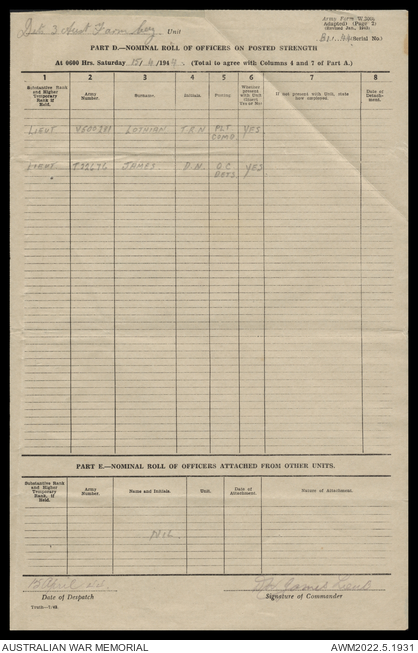 Det 3 Aust Farm Coy Unit
Army Form W.3008
Adapted) (Page 2)
(Serial No.)
PART D.—NOMINAL ROLL OF OFFICERS ON POSTED STRENGTH
At 0600 Hrs. Saturday 15/4/1944. (Total to agree with Columns 4 and 7 of Part A.)
1 2 3 4 5 6 7 8
Substantive Rank and Higher Temporary Rank if Held. Army Number. Surname. Initials. Posting. Whether present with Unit (State) Yes or No If not present with Unit, state how employed. Date of Detachment.
LIEUT LOTHIAN T.R.N PLT COMD YES
LIEUT JAMES D.N. OC DETS YES
PART E.—NOMINAL ROLL OF OFFICERS ATTACHED FROM OTHER UNITS.
Substantive Rank and Higher Temporary Rank, if Held. Army Number. Name and Initials. Unit. Date of Attachment Nature of Attachment.
NIL.
15 April 44.
James Lieut
Date of Despatch Signature of Commander
AUSTRALIAN WAR MEMORIAL AWM2022.5.1931